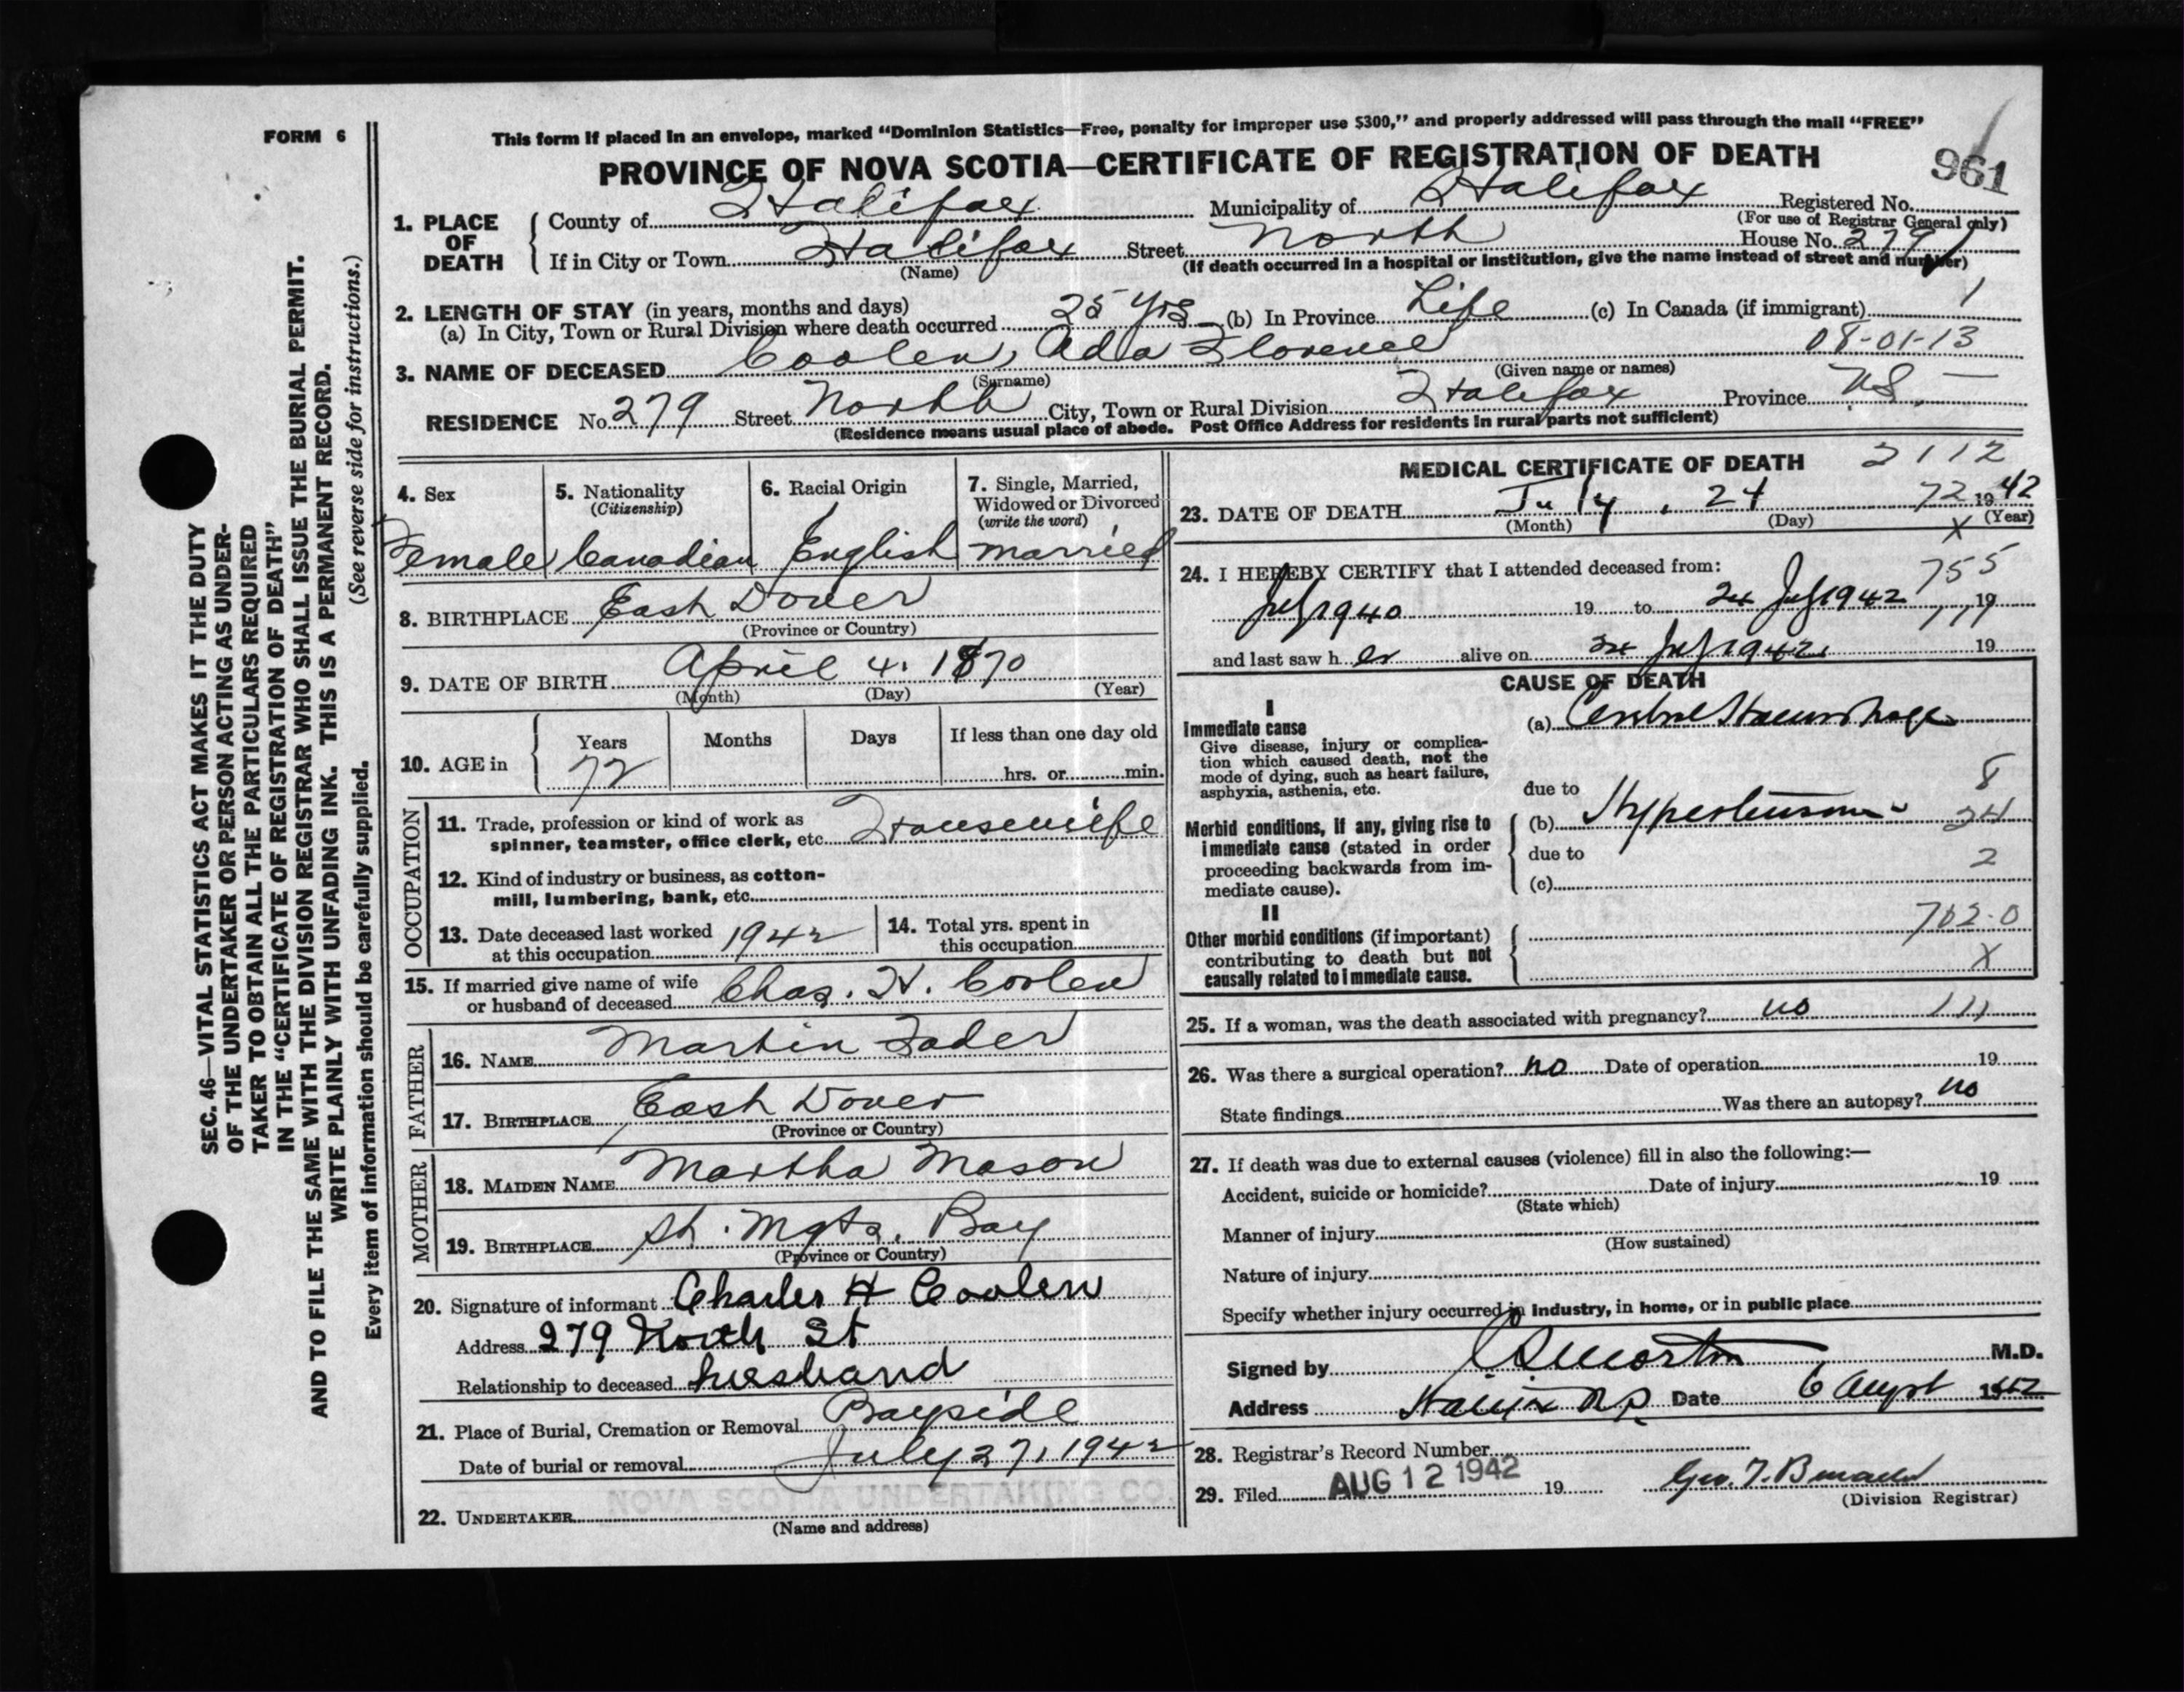 FORM 6
This form if placed in an envelope, marked “Dominion Statistics—Free, penalty for improper use $300,” and properly addressed will pass through the mail “FREE”
PROVINCE OF NOVA SCOTIA—CERTIFICATE OF REGISTRATION OF DEATH
961
1. PLACE OF DEATH
County of Halifax Municipality of Halifax Registered No.
(For use of Registrar General only)
If in City or Town Halifax Street North House No. 279
(Name) (If death occurred in a hospital or institution, give the name instead of street and number)
2. LENGTH OF STAY (in years, months and days)
(a) In City, Town or Rural Division where death occurred 25 Yrs (b) In Province Life (c) In Canada (if immigrant)
1
3. NAME OF DECEASED Coolen, Ada Florence 08-01-13
(Surname) (Given name or names)
RESIDENCE No. 279 Street North City, Town or Rural Division Halifax Province N.S. —
(Residence means usual place of abode. Post Office Address for residents in rural parts not sufficient)
4. Sex
Female
5. Nationality
(Citizenship)
Canadian
6. Racial Origin
English
7. Single, Married,
Widowed or Divorced
(write the word)
married
8. BIRTHPLACE East Dover
(Province or Country)
9. DATE OF BIRTH April 4. 1870
(Month) (Day) (Year)
10. AGE in
Years Months Days If less than one day old
72 hrs. or min.
OCCUPATION
11. Trade, profession or kind of work as
spinner, teamster, office clerk, etc. Housewife
12. Kind of industry or business, as cotton-
mill, lumbering, bank, etc.
13. Date deceased last worked
at this occupation 1942
14. Total yrs. spent in
this occupation
15. If married give name of wife
or husband of deceased Chas. H. Coolen
FATHER
16. NAME Martin Fader
17. BIRTHPLACE East Dover
(Province or Country)
MOTHER
18. MAIDEN NAME Martha Mason
19. BIRTHPLACE St. Mgts. Bay
(Province or Country)
20. Signature of informant Charles H Coolen
Address 279 North St
Relationship to deceased husband
21. Place of Burial, Cremation or Removal Bayside
Date of burial or removal July 27, 1942
NOVA SCOTIA UNDERTAKING CO.
22. UNDERTAKER
(Name and address)
MEDICAL CERTIFICATE OF DEATH 2112
23. DATE OF DEATH July, 24 72 1942
(Month) (Day) (Year)
X
24. I HEREBY CERTIFY that I attended deceased from:
755
July 1940 19 to 24 July 1942 19
111
and last saw h er alive on 24 July 1942 19
CAUSE OF DEATH
I
Immediate cause
Give disease, injury or complica-
tion which caused death, not the
mode of dying, such as heart failure,
asphyxia, asthenia, etc.
(a) Cerebral Haemorrhage
8
due to
Morbid conditions, if any, giving rise to
immediate cause (stated in order
proceeding backwards from im-
mediate cause).
(b) Hypertension 24
due to
2
(c)
II
Other morbid conditions (if important)
contributing to death but not
causally related to immediate cause.
702-0
X
25. If a woman, was the death associated with pregnancy? no 111
26. Was there a surgical operation? no Date of operation 19
State findings Was there an autopsy? no
27. If death was due to external causes (violence) fill in also the following:—
Accident, suicide or homicide? Date of injury 19
(State which)
Manner of injury
(How sustained)
Nature of injury
Specify whether injury occurred in industry, in home, or in public place
Signed by Morton M.D.
Address Halifax N.S. Date 6 August 1942
28. Registrar's Record Number
29. Filed AUG 12 1942 19
(Division Registrar)
SEC. 46—VITAL STATISTICS ACT MAKES IT THE DUTY
OF THE UNDERTAKER OR PERSON ACTING AS UNDER-
TAKER TO OBTAIN ALL THE PARTICULARS REQUIRED
IN THE “CERTIFICATE OF REGISTRATION OF DEATH”
AND TO FILE THE SAME WITH THE DIVISION REGISTRAR WHO SHALL ISSUE THE BURIAL PERMIT.
WRITE PLAINLY WITH UNFADING INK. THIS IS A PERMANENT RECORD.
Every item of information should be carefully supplied. (See reverse side for instructions.)